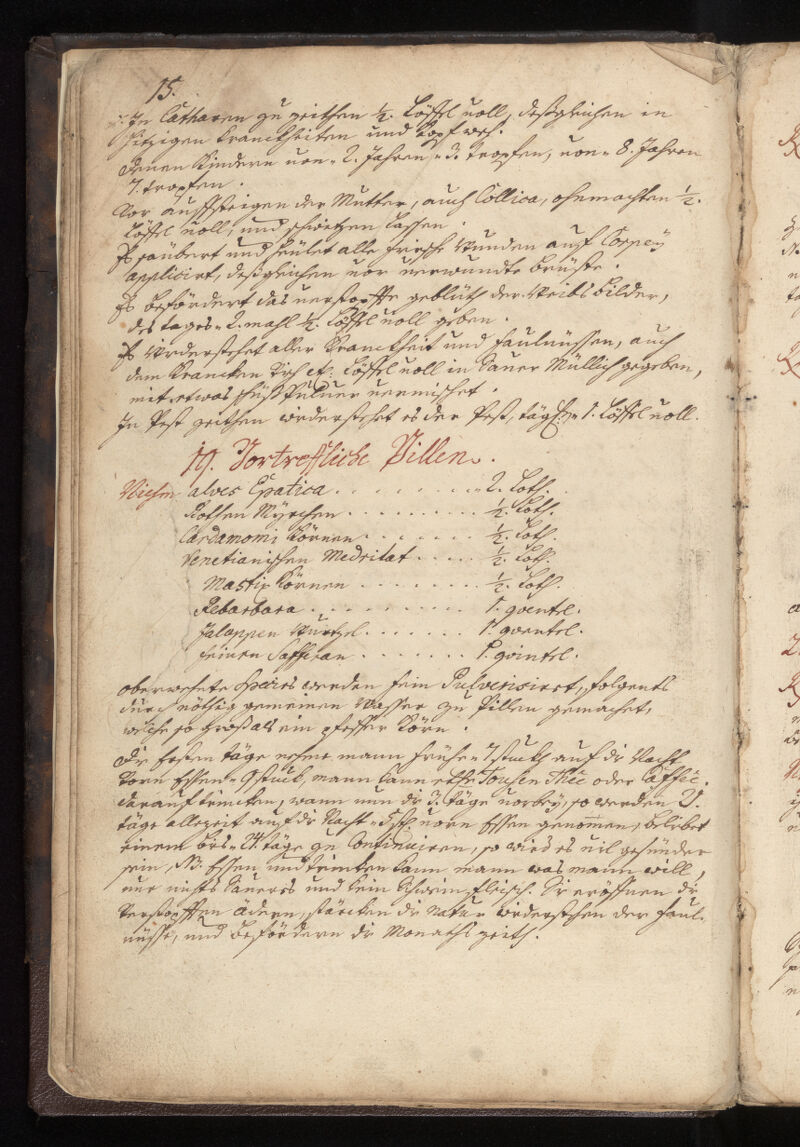 15.
In Catharen zu zeithen ½. Löffel voll, deßgleichen in
hitzigen Kranckheiten und Kopf weh.
Denen Kindern von 2. Jahren, 3. tropfen, von 8. Jahren
7. tropfen.
Vor auffsteigen der Mutter, auch Collica, ohnmachten ½.
Löffel voll, und schwitzen lassen.
Es säubert und heület alle frische Wunden auf Corpey
applicirt, deßgleichen vor verwundte brüste.
Es befördert das verstopffte geblüth der Weibs bilder,
des tages 2. mahl ½. Löffel voll geben.
Es Widerstehet aller Kranckheit und faulnüssen, auch
dem Krancken Löffel voll in Sauer Müllich gegeben,
mit etwas schieß Pulver vermischet.
In Pest zeithen widerstehet es der Pest, tägl: 1. Löffel voll.
19. Vortreffliche Pillen.
Niehm aloes Epatica . . . . . . . 2. Loth.
Rothen Myrrhen . . . . . . . . ½. Loth.
Cardamomi Körnen . . . . . . ½. Loth.
Venetianischen Medritat . . . . ½. Loth.
Mastix Körnen . . . . . . . ½. Loth.
Rebarbara . . . . . . . . . . 1. quentl.
Jalappen Wurtzel . . . . . . 1. quentel.
feinen Saffran . . . . . . . 1. quintel.
oberwehnte Species werden fein Pulverisiert, folgents
durch nöthig gemeinen Wasser zu Pillen gemachet,
welche so groß als ein pfeffer Korn.
Die ersten täge nehme mann frühe 7 stuckh auf die Nacht
Vorn Essen 9 stuck, mann kann Thée oder Caffée.
darauf trincken, wann nun die 3. täge vorbey, so werden
täge allezeit auf die Nacht 5 st. vorn Essen genomen, beliebet
einem biß 14. täge zu Continuiren, so wird es vil gesünder
sein, NB. Essen und trincken kann mann was mann will,
nur nichts Saueres und kein Schwein fleisch. Sie eröffnen die
verstopfften Adern, stärcken die Natur widerstehen der faul-
nüsse, und befördern die Monaths zeith.